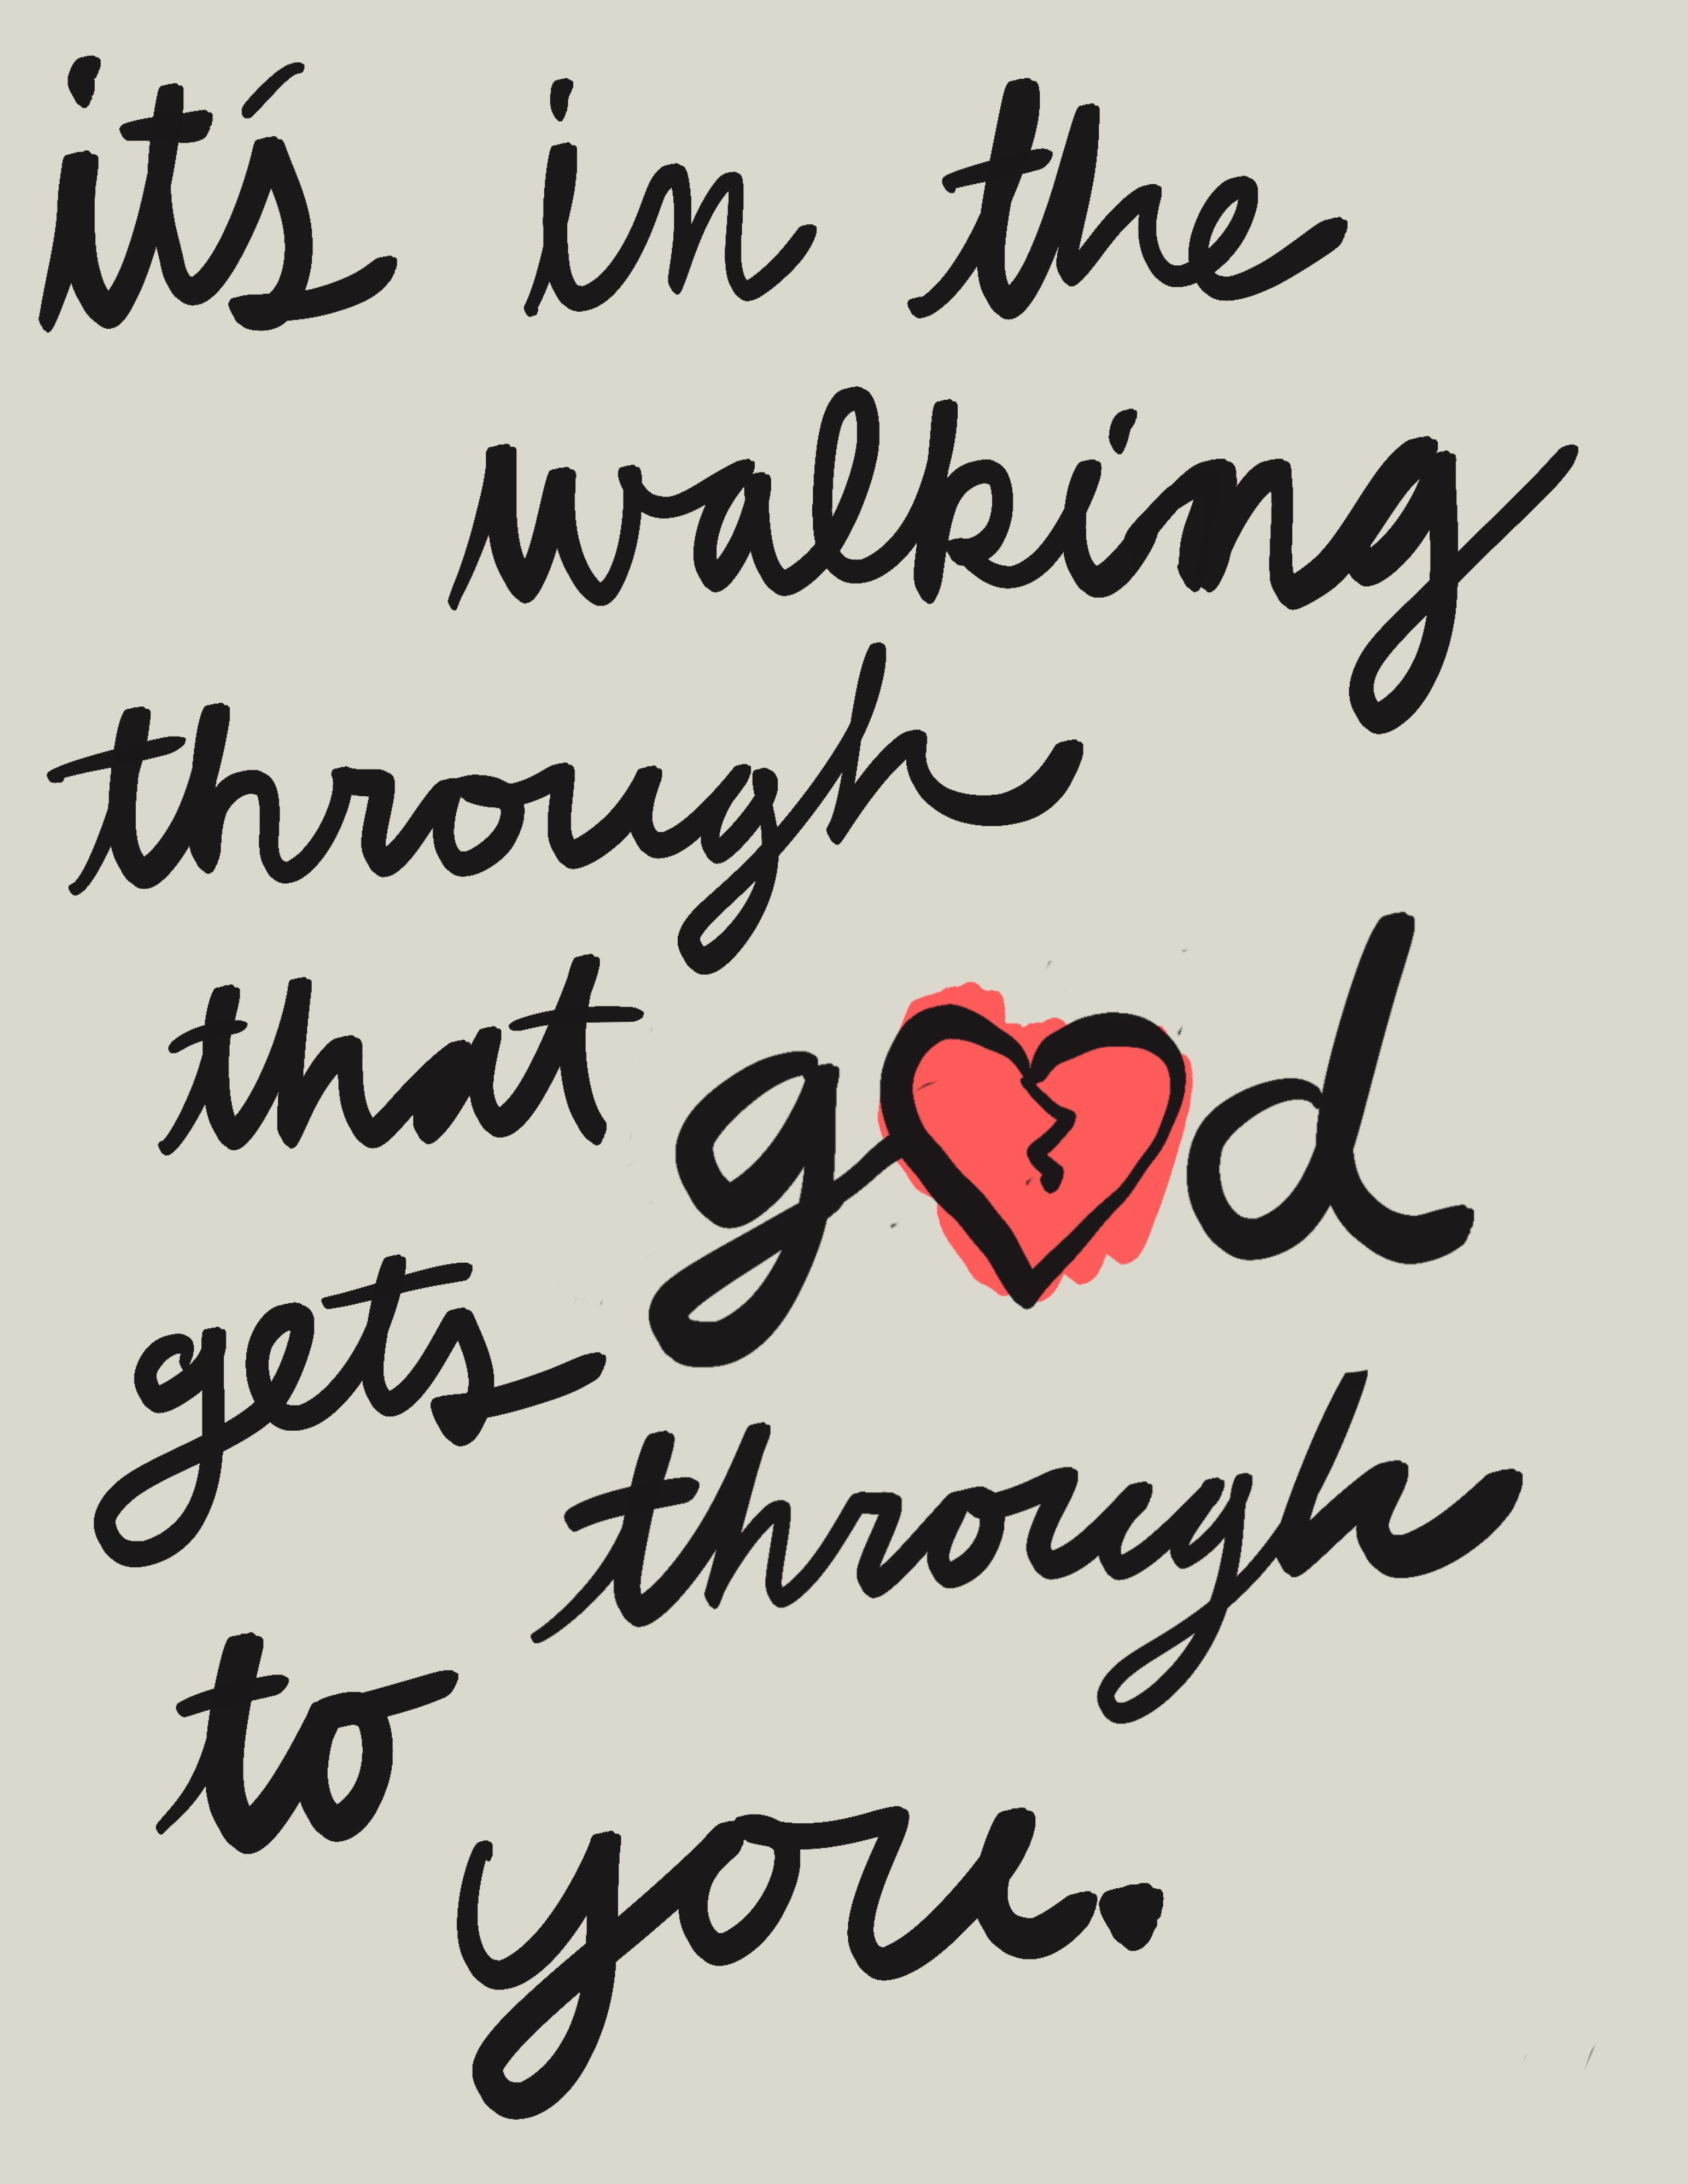 it's in the
walking
through
that god
gets
through
to
you.